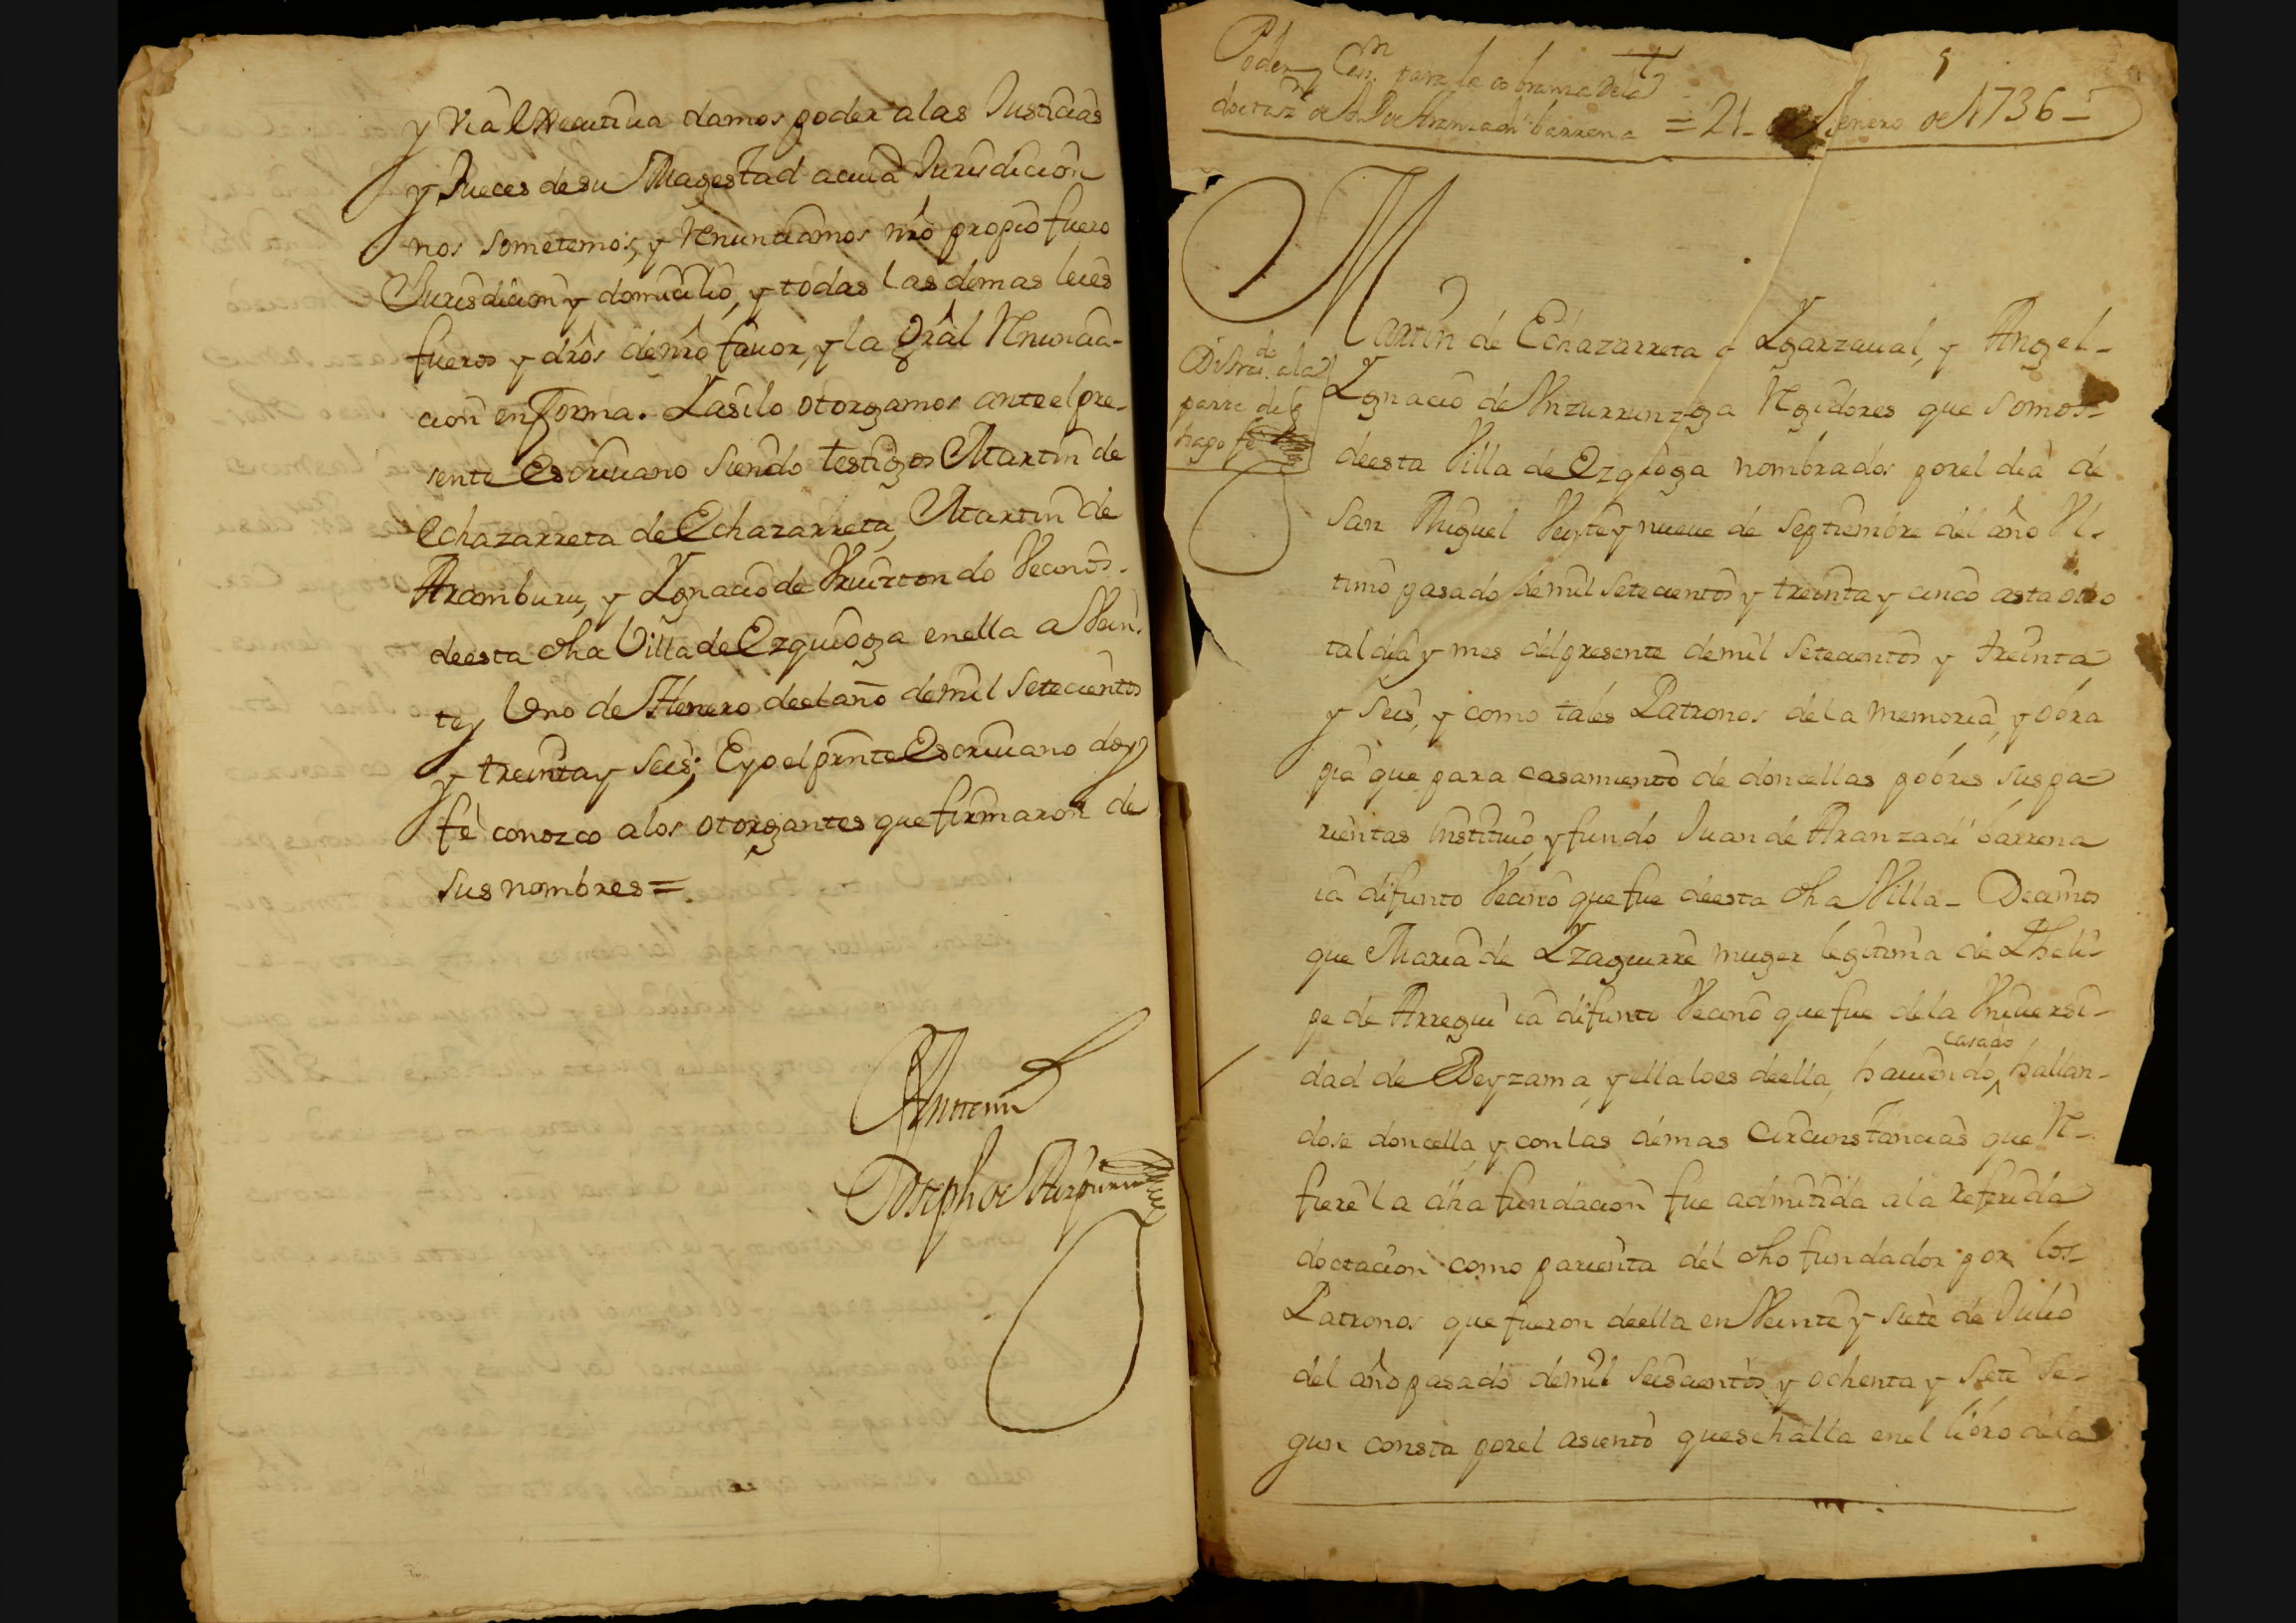 y via executiua damos poder alas Justicias
y Jueces desu Magestad acuia Jurisdicion
nos sometemos, y renunciamos nrô propio fuero
Jurisdicion y domicilio, y todas las demas leies
fueros y drôs denrô fauor, y la grâl renuncia-
cion en forma. Yasilo otorgamos ante el pre-
sente Escriuano siendo testigos Martin de
Echazarreta de Echazarreta, Martin de
Aramburu, y Ygnacio de Vicinos.
deesta dha Villa de Ezquioga enella a Vein-
te y Vno de Henero deel año demil setecientos
y treinta y seis; E yo el prnte Escriuano doy
fè conozco alos otorgantes que firmaron de
sus nombres =.
Antemi
Joseph de
5
Poder, y Cesn. para la cobranza dela
de Aranzadi barrena = 21- de henero de 1736 -
Martin de Echazarreta è Ygarzaual, y Angel-
Ygnacio de Vnzurrunzaga Regidores que somos-
deesta Villa de Ezquioga nombrados porel dia de
San Miguel Veyte y nueue de septiembre del año Vl-
timo pasado demil setecientos y treinta y cinco asta otro
tal dia y mes del presente demil setecientos y treinta
y seis, y como tales Patronos dela memoria, y obra
pia que para casamiento de doncellas pobres sus pa-
rientas instituio, y fundo Juan de Aranzadi barrena
ia difunto Vecino que fue deesta dha Villa- Decimos
que Maria de Yzaguirre muger legitima de Pheli-
pe de Arregui ia difunto Vecino que fue dela Vniuersi-
dad de Beyzama, y ella loes deella, hauiendo casado hallan-
dose doncella, y con las demas circunstancias que re-
fiere la dha fundacion fue admitida ala referida
doctacion como parienta del dho fundador por los-
Patronos que fueron deella en Veinte y siete de Julio
del año pasado demil seiscientos y ochenta y siete se-
gun consta porel asiento quesehalla enel libro dela
Distrido. ala
parte de q
hago fe